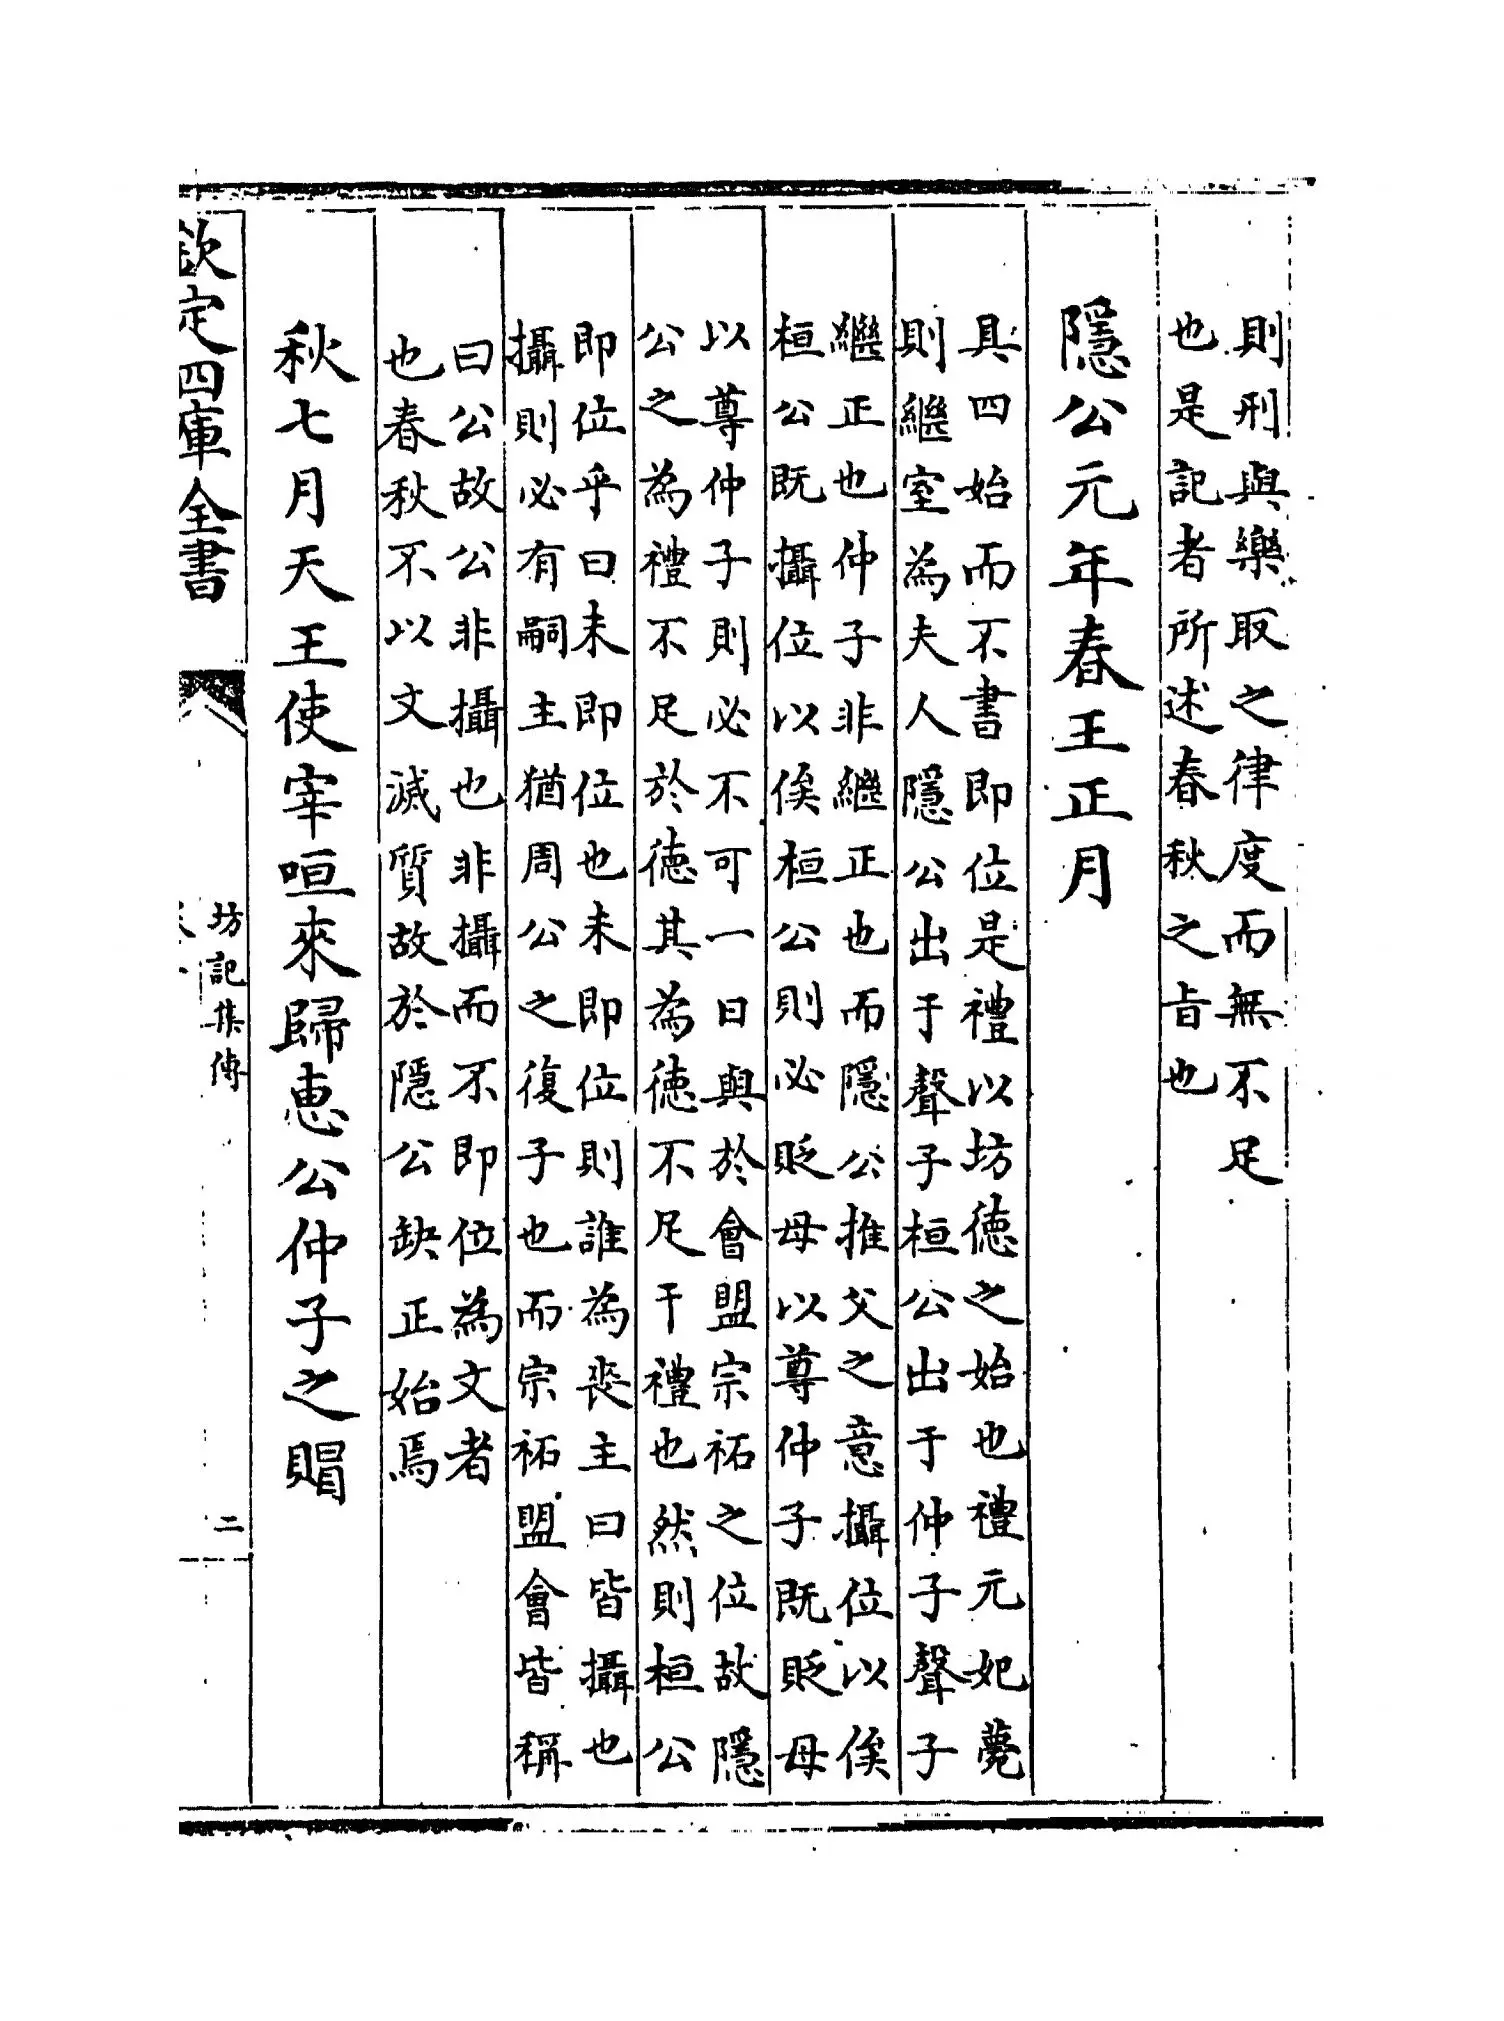 則刑與樂取之律度而無不足
也是記者所述春秋之旨也
隱公元年春王正月
具四始而不書即位是禮以坊德之始也禮元妃薨
則繼室為夫人隱公出于聲子桓公出于仲子聲子
繼正也仲子非繼正也而隱公推父之意攝位以俟
桓公既攝位以俟桓公則必貶母以尊仲子既貶母
以尊仲子則必不可一日與於會盟宗祏之位故隱
公之為禮不足於德其為德不足干禮也然則桓公
即位乎曰未即位也未即位則誰為喪主曰皆攝也
攝則必有嗣主猶周公之復子也而宗祏盟會皆稱
曰公故公非攝也非攝而不即位為文者
也春秋不以文滅質故於隱公缺正始焉
秋七月天王使宰咺來歸惠公仲子之賵
欽定四庫全書
坊記集傳
二